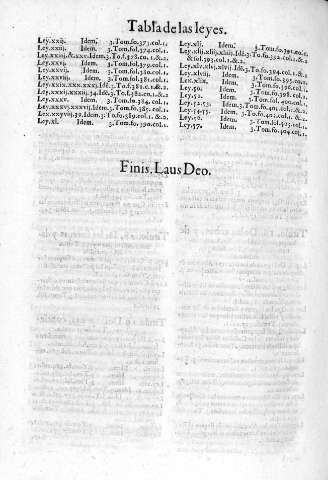 Tabla de las leyes.
Ley.xxij. Idem. 3.Tom.fo.373.col.1.
Ley.xxiij. Idem. 3.Tom.fol.374.col.1.
Ley.xxiiij.&.xxv.Idem.3.To.f.378.co.1.&.2.
Ley.xxvj. Idem. 3.Tom.fol.379.col.1.
Ley.xxvij. Idem. 3.Tom.fol.380.col.1.
Ley.xxviij. Idem. 3.Tom.fol.381.col.1.
Ley.xxix.xxx.xxxj.Id.3.To.f.381.c.1.&.2.
Ley.xxxij.xxxiij.34.Ide.3.To.f.382.co.1.&.2.
Ley.xxxv. Idem. 3.Tom.fo.384. col.1.
Ley.xxxvj.xxxvij.Idem.3.Tom.fo.385.col.1.
Ley.xxxviij.39.Idem.3.To.fo.389.col.1.&.2.
Ley.xl. Idem. 3.Tom.fo.390.col.1.
Ley.xlj. Idem. 3.Tom.fo.391.col.1.
Ley.xlij.xliij.xliiij.Ide.3.To.fo.392.col.1.&.2.
&.fol.393.col.1.&.2.
Ley.xlv.xlvj.xlvij.Ide.3.To.fo.394.col.1.&.2.
Ley.xlviij. Idem. 3.Tom.fo.395.col.1.
Ley.xlix. Idem. 3.Tom.fo.396.col.1.
Ley.50. Idem. 3.Tom.fo.398.col.1.
Ley.52. Idem. 3.Tom.fol.400.col.1.
Ley.52.53. Idem.3.Tom.fo.401.col.1.&.2.
Ley.54.55. Idem. 3.Tom.fo.402.col.1.&.2.
Ley.56. Idem. 3.Tom.fol.403.col.1.
Ley.57. Idem. 3.Tom.fo.404.col.1.
Finis. Laus Deo.